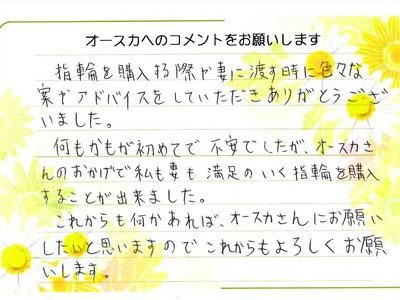 オースカへのコメントをお願いします
指輪を購入する際や妻に渡す時に色々な
案やアドバイスをしていただきありがとうござ
いました。
何もかもが初めてで不安でしたが、オースカさ
んのおかげで私も妻も満足のいく指輪を購入
することが出来ました。
これからも何かあれば、オースカさんにお願い
したいと思いますのでこれからもよろしくお願
いします。